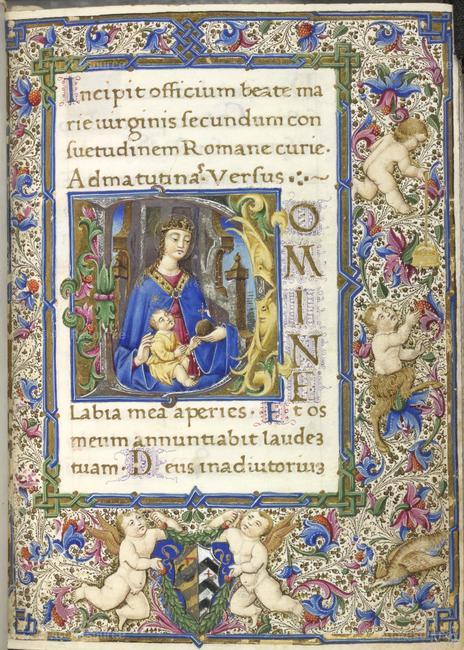 Incipit officium beate ma
rie uirginis secundum con
suetudinem Romane curie.
Ad matutinas. Versus
DOMINE
Labia mea aperies. Et os
meum annuntiabit laudeз
tuam. Deus in adiutoriuз